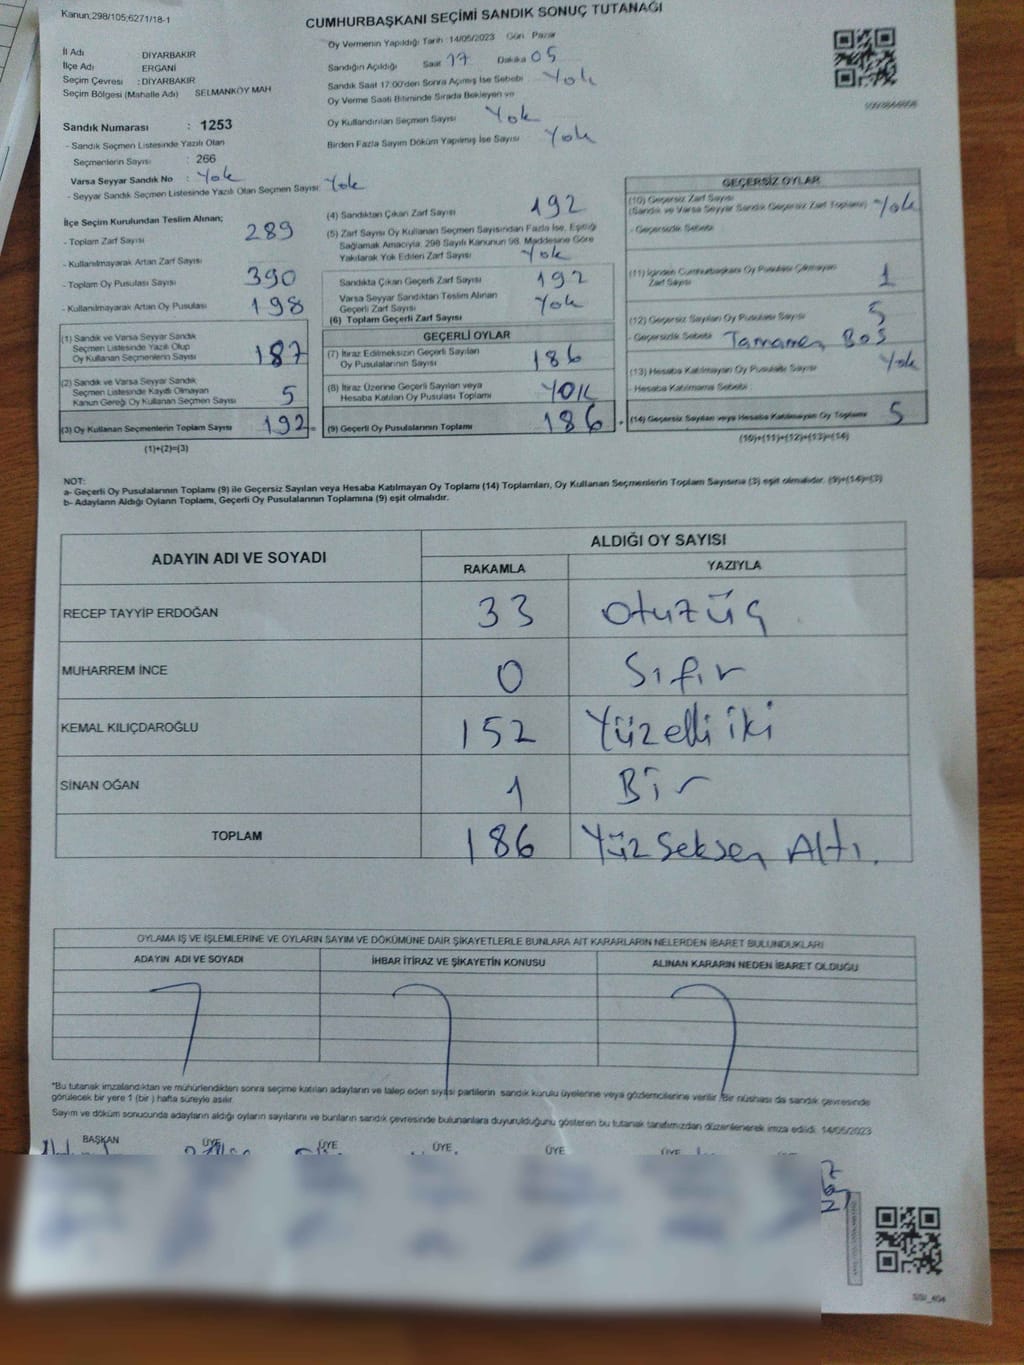 Kanun;298/105;6271/18-1
CUMHURBAŞKANI SEÇİMİ SANDIK SONUÇ TUTANAĞI
İl Adı DİYARBAKIR
İlçe Adı ERGANİ
Seçim Çevresi : DİYARBAKIR
Seçim Bölgesi (Mahalle Adı) SELMANKÖY MAH
Sandık Numarası : 1253
- Sandık Seçmen Listesinde Yazılı Olan
Seçmenlerin Sayısı : 266
Varsa Seyyar Sandık No : Yok
- Seyyar Sandık Seçmen Listesinde Yazılı Olan Seçmen Sayısı: Yok
Oy Vermenin Yapıldığı Tarih :14/05/2023 Gün Pazar
Sandığın Açıldığı Saat 17 Dakika 05
Sandık Saat 17:00'den Sonra Açılmış İse Sebebi : Yok
Oy Verme Saati Bitiminde Sırada Bekleyen ve
Oy Kullandırılan Seçmen Sayısı Yok
Birden Fazla Sayım Döküm Yapılmış İse Sayısı Yok
İlçe Seçim Kurulundan Teslim Alınan;
- Toplam Zarf Sayısı 289
- Kullanılmayarak Artan Zarf Sayısı
- Toplam Oy Pusulası Sayısı 390
- Kullanılmayarak Artan Oy Pusulası 198
(1) Sandık ve Varsa Seyyar Sandık
Seçmen Listesinde Yazılı Olup
Oy Kullanan Seçmenlerin Sayısı 187
(2) Sandık ve Varsa Seyyar Sandık
Seçmen Listesinde Kayıtlı Olmayan
Kanun Gereği Oy Kullanan Seçmen Sayısı 5
(3) Oy Kullanan Seçmenlerin Toplam Sayısı 192
(1)+(2)=(3)
(4) Sandıktan Çıkan Zarf Sayısı 192
(5) Zarf Sayısı Oy Kullanan Seçmen Sayısından Fazla İse, Eşitliği
Sağlamak Amacıyla, 298 Sayılı Kanunun 98. Maddesine Göre
Yakılarak Yok Edilen Zarf Sayısı Yok
Sandıkta Çıkan Geçerli Zarf Sayısı 192
Varsa Seyyar Sandıktan Teslim Alınan
Geçerli Zarf Sayısı Yok
(6) Toplam Geçerli Zarf Sayısı
GEÇERLİ OYLAR
(7) İtiraz Edilmeksizin Geçerli Sayılan
Oy Pusulalarının Sayısı 186
(8) İtiraz Üzerine Geçerli Sayılan veya
Hesaba Katılan Oy Pusulası Toplamı YOK
(9) Geçerli Oy Pusulalarının Toplamı 186
GEÇERSİZ OYLAR
(10) Geçersiz Zarf Sayısı
(Sandık ve Varsa Seyyar Sandık Geçersiz Zarf Toplamı) Yok
- Geçersizlik Sebebi :
(11) İçinden Cumhurbaşkanı Oy Pusulası Çıkmayan
Zarf Sayısı 1
(12) Geçersiz Sayılan Oy Pusulası Sayısı 5
- Geçersizlik Sebebi : Tamamen BoŞ
(13) Hesaba Katılmayan Oy Pusulası Sayısı Yok
- Hesaba Katılmama Sebebi :
(14) Geçersiz Sayılan veya Hesaba Katılmayan Oy Toplamı 5
(10)+(11)+(12)+(13)=(14)
NOT:
a- Geçerli Oy Pusulalarının Toplamı (9) ile Geçersiz Sayılan veya Hesaba Katılmayan Oy Toplamı (14) Toplamları, Oy Kullanan Seçmenlerin Toplam Sayısına (3) eşit olmalıdır. (9)+(14)=(3)
b- Adayların Aldığı Oyların Toplamı, Geçerli Oy Pusulalarının Toplamına (9) eşit olmalıdır.
ADAYIN ADI VE SOYADI ALDIĞI OY SAYISI
RAKAMLA YAZIYLA
RECEP TAYYİP ERDOĞAN 33 otuzüç
MUHARREM İNCE 0 Sıfır
KEMAL KILIÇDAROĞLU 152 Yüzelli iki
SİNAN OĞAN 1 Bir
TOPLAM 186 Yüz Seksen Altı.
OYLAMA İŞ VE İŞLEMLERİNE VE OYLARIN SAYIM VE DÖKÜMÜNE DAİR ŞİKAYETLERLE BUNLARA AİT KARARLARIN NELERDEN İBARET BULUNDUKLARI
ADAYIN ADI VE SOYADI İHBAR İTİRAZ VE ŞİKAYETİN KONUSU ALINAN KARARIN NEDEN İBARET OLDUĞU
*Bu tutanak imzalandıktan ve mühürlendikten sonra seçime katılan adayların ve talep eden siyasi partilerin sandık kurulu üyelerine veya gözlemcilerine verilir. Bir nüshası da sandık çevresinde
görülecek bir yere 1 (bir) hafta süreyle asılır.
Sayım ve döküm sonucunda adayların aldığı oyların sayılarını ve bunların sandık çevresinde bulunanlara duyurulduğunu gösteren bu tutanak tarafımızdan düzenlenerek imza edildi. 14/05/2023
BAŞKAN ÜYE ÜYE ÜYE ÜYE ÜYE